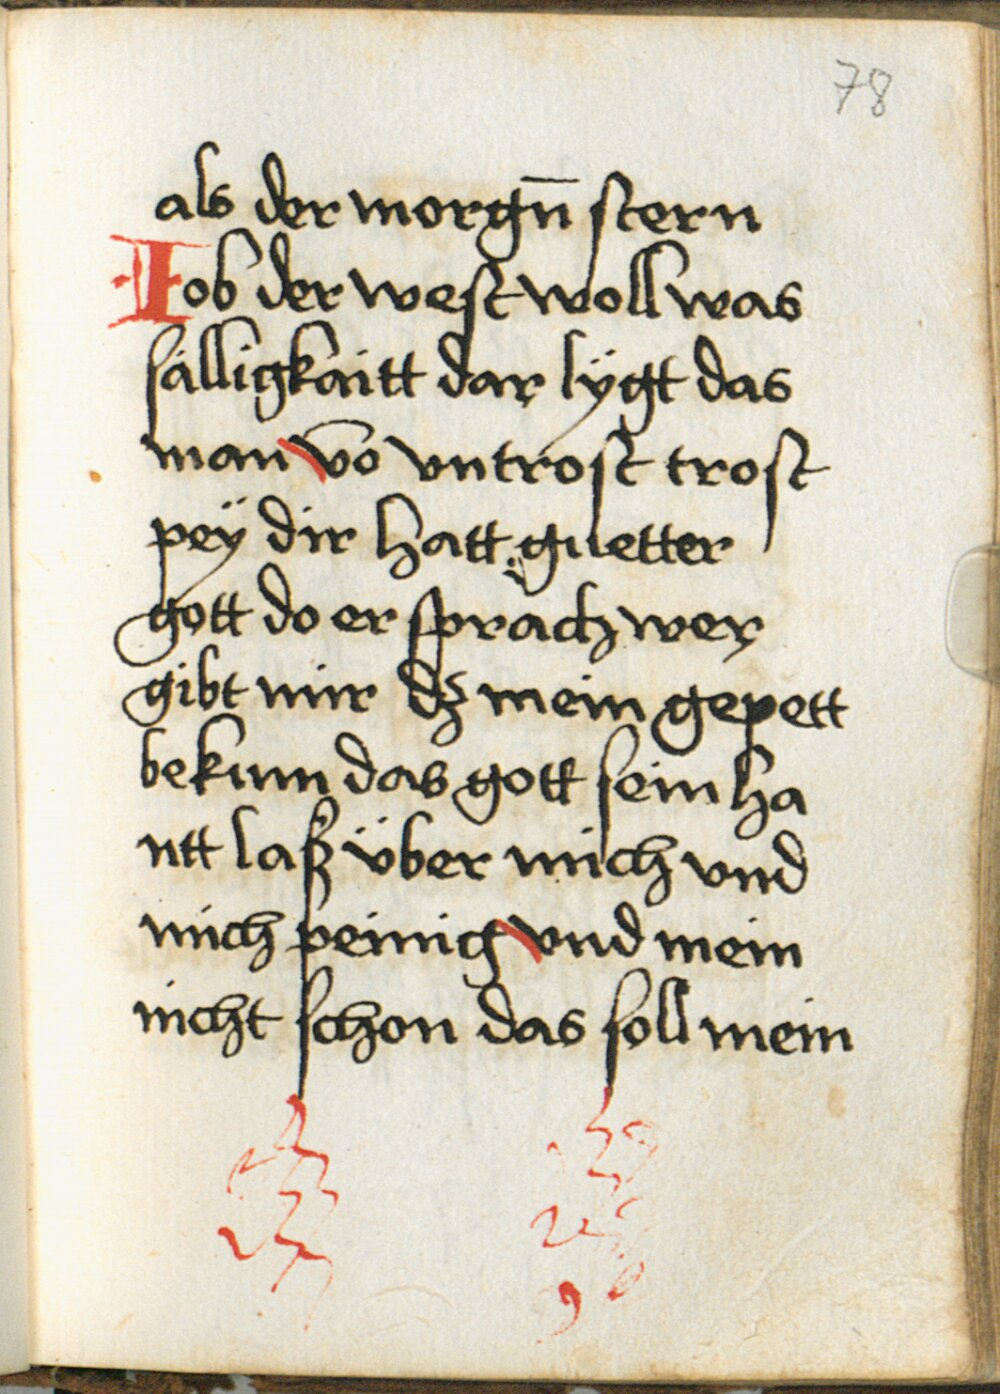 78
als der morgn̄ stern
Iob der west woll was
sälligkaitt dar lÿgt das
man vō vntrost trost
peÿ dir hatt guetter
gott do er sprach wer
gibt mir dz mein gepett
bekum das gott sein ha
ntt laß über mich vnd
mich peinig vnd mein
nicht schon das soll mein